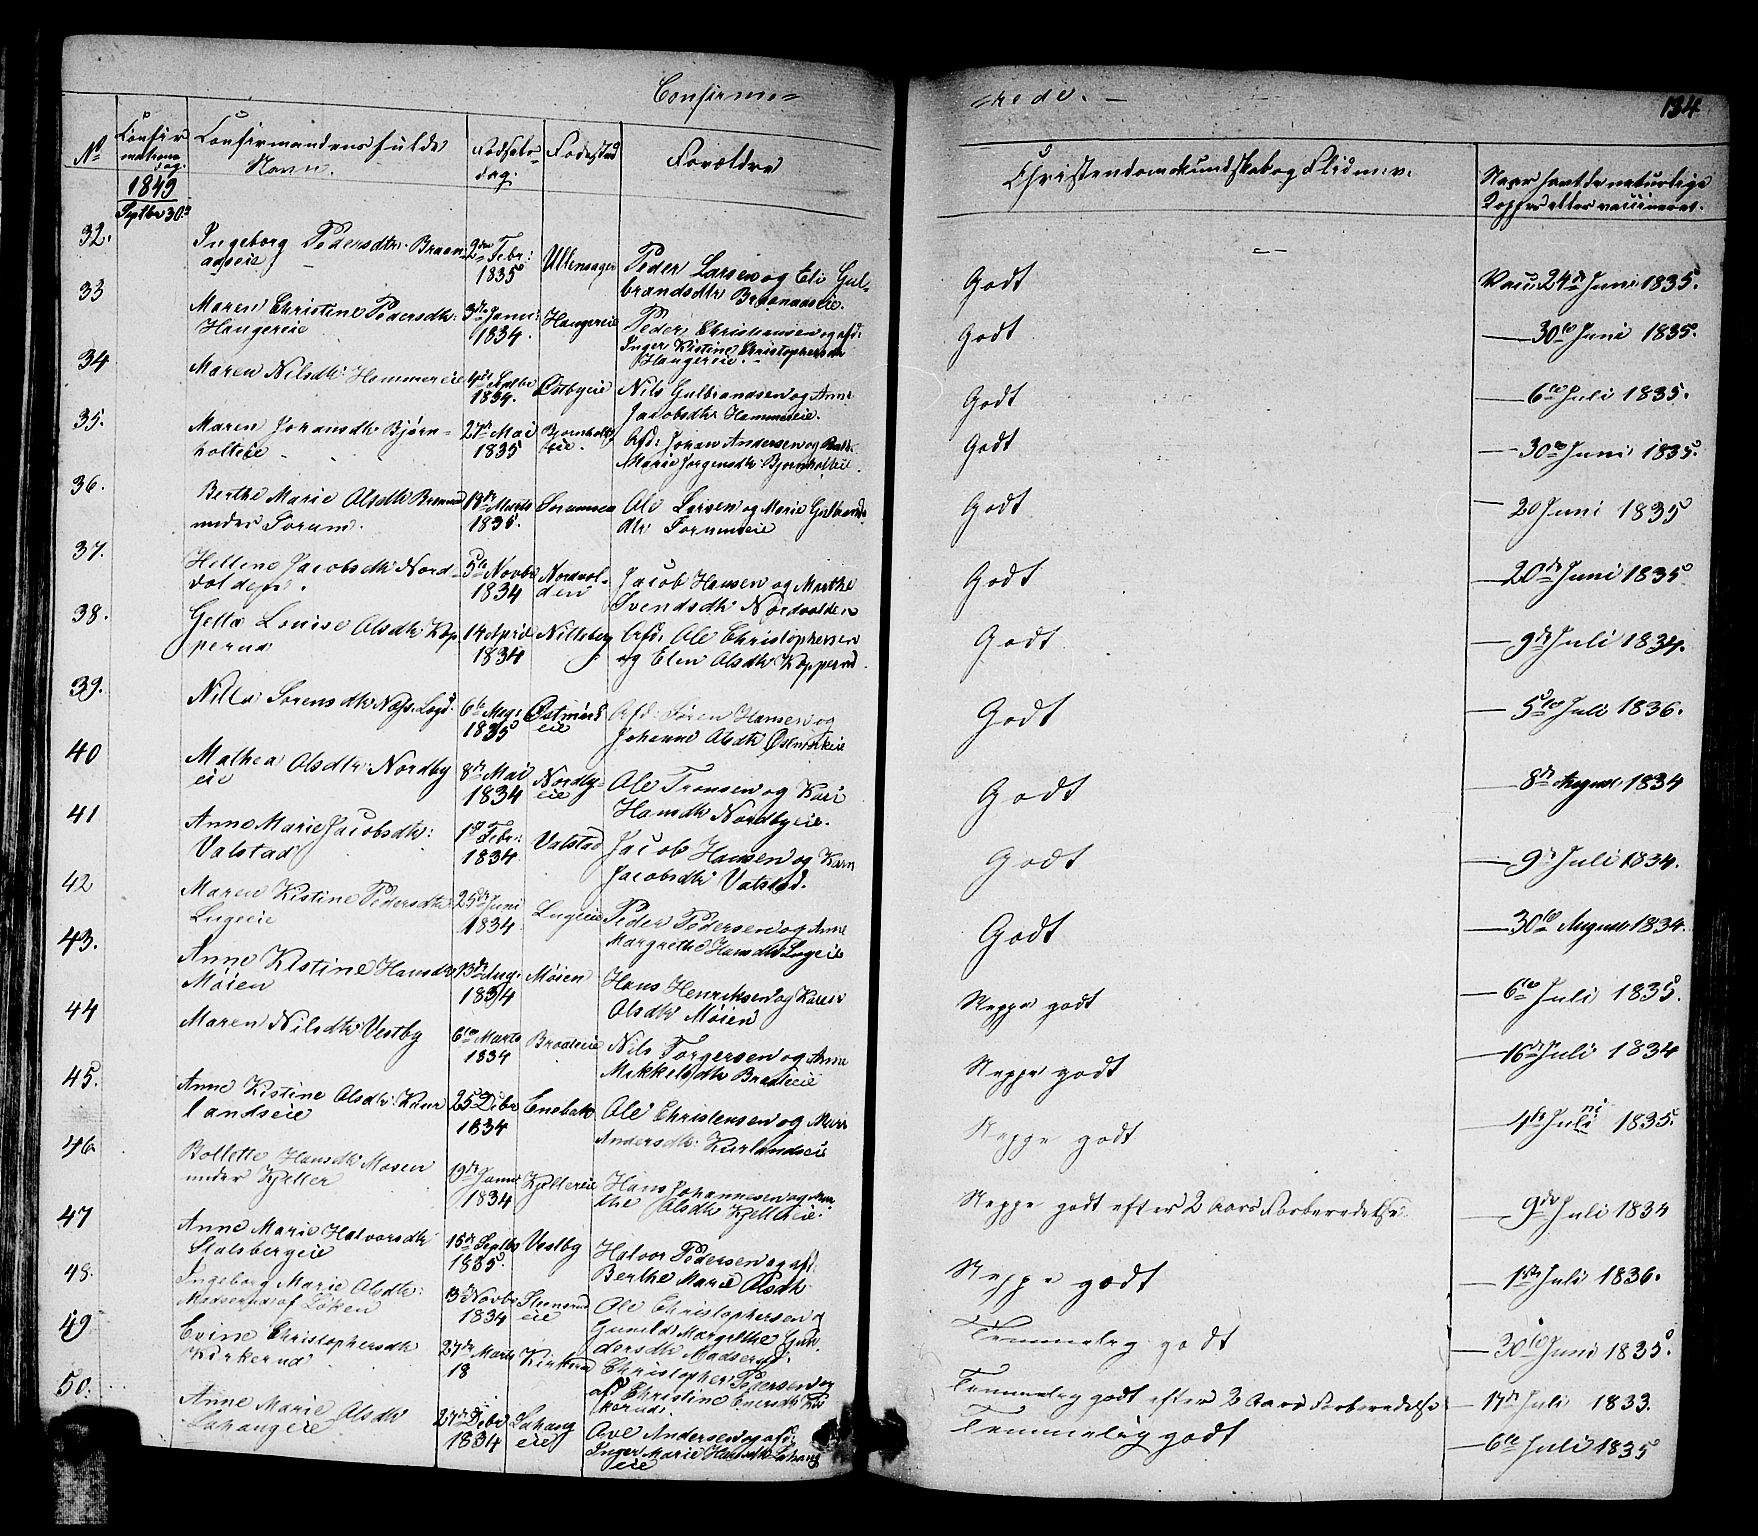 Confirme=
=rede. —
134
No
Confir
mations
dag.
Confirmandens fulde
Navn.
Fødsels-
dag.
Fødested
Forældre
Christendomskundskab og Flid m. v.
Naar havt de naturlige
Kopper eller vaccineret.
1849
Septbr 30.
32. Ingeborg Pedersdtr. Braan
adseie 2den Febr: 1835 Ullensager Peder Larsen og Eli Gul-
brandsdtr Braanaaseie. Godt Vacc: 24de Juni 1835.
33 Maren Christine Pedersdtr:
Haugereie 3die Janu: 1834. Haugereie Peder Christiansen og afd:
Inger Kistine Christophersdr
Haugereie. Godt — 30te Juni 1835.
34 Maren Nilsdtr Hammereie 4de Septbr 1834. Østbyeie Nils Gulbrandsen og Anne
Jacobsdtr Hammereie. Godt — 6te Juli 1835.
35. Maren Johansdtr Bjørn-
holteie 27de Mai 1835 Bjørnholt
eie. Afd: Johan Andersen og
Marie Jørgensdtr Bjørnholteie. Godt — 30te Juni 1835.
36. Berthe Marie Olsdtr
under Sørum. 13de Marts 1835. Ole Larsen og Marie Gulbrands
dtr Godt — 20 Juni 1835
37. Hellene Jacobsdtr Nord-
volden. 5te Novbr 1834 Nordvol-
den Jacob Hansen og Marthe
Svendsdtr Nordvolden Godt — 20de Juni 1835
38. Louise Olsdtr Kop
perud 14 April 1834 Nittebergs Afd: Ole Christophersen
og Elen Olsdtr Kopperud. Godt — 9de Juli 1834.
39. Sørensdtr Næss. Lagd. 6te 1835 Østmork
eie Afd: Søren Hansen og
Johanne Olsdtr Østmorkeie Godt — 5te Juli 1836.
40 Mathea Olsdtr: Nordby
eie 8de Mai 1834 Nordby-
eie Ole Tronsen og Kari
Hansdtr Nordbyeie. Godt — 8de August 1834
41 Anne Marie Jacobsdtr:
Valstad 1ste Febr: 1834. Valstad Jacob Hansen og Karen
Jacobsdtr Valstad. Godt — 9de Juli 1834.
42 Maren Kistine Pedersdtr
Lugeie 25de Juni 1834. Lugeie Peder Pedersen og Anne
Margrethe Hansdtr Lugeie Godt — 30te August 1834.
43. Anne Kistine Hansdtr
Møien 13de Aug. 1834 Møien Hans Henriksen og Karen
Olsdtr Møien Neppe godt — 6te Juli 1835.
44 Maren Nilsdtr Vestby 6te Marts 1834 Braateeie Nils Torgersen og Anne
Mikkelsdtr Neppe godt — 16de Juli 1834
45. Anne Kistine Olsdtr Kur
landseie 25 Dcbr 1834 Enebak Ole Christensen og Mari
Andersdtr Kurlandseie Neppe godt — 4de Juli ni 1835.
46. Bollette Hansdtr Mosen
under Kjeller 19de Janu 1834 Kjellereie Hans Johannesen og Mar
the Olsdtr Kjellereie. Neppe godt efter 2 Aars Forberedelse — 9de Juli 1834
47 Anne Marie Halvorsdtr
Stalsbergeie 15de Septbr 1835. Vestby Halvor Pedersen og afd:
Berthe Marie Olsdtr Neppe godt — 1ste Juli 1836.
48. Ingeborg Marie Olsdtr:
Madserud af Løken 13de Novbr 1834 Steensrud
eie Ole Christophersen og
Gunild Margrethe Gun-
dersdtr Madserud. Temmelig godt — 30te Juni 1835.
49 Evine Christophersdtr
Kirkerud 27de Marts 18 Kirkerud Christopher Pedersen og
afd Christine
kerud. Temmelig godt efter 2 Aars Forberedelse — 17de Juli 1833.
50. Anne Marie Olsdtr
Lahaugeie 27de Dcbr 1834 Lahaug
eie Ove Andersen og afd:
Inger Marie Hansdtr Lahaug
eie Temmelig godt — 6te Juli 1835